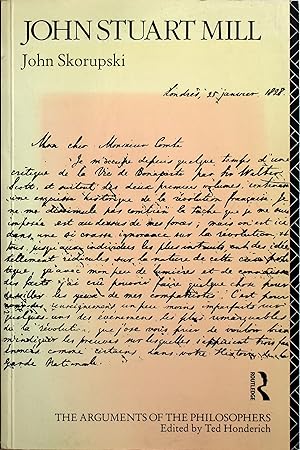 JOHN STUART MILL
John Skorupski
Londres, 25 janvier, 1828.
Mon cher Monsieur Comte
Je m'occupe depuis quelque temps d'une
critique de la Vie de Bonaparte par Sir Walter
Scott, et surtout des deux premiers volumes, contenant
une esquisse historique de la révolution française. Je
ne me dissimule pas combien la tâche que je me suis
imposée est au dessus de mes forces; mais l'on est ici
dans si crasse ignorance sur la révolution, et
tous, jusqu'aux individus les plus instruits ont des idées
tellement ridicules sur la nature de cette crise politique
qu'avec mon peu de lumières et de connaissance
des faits j'ai cru pouvoir faire quelque chose pour
dessiller les yeux de mes compatriotes. C'est pour
quelques uns des évènemens les plus remarquables
de la révolution, que j'ose vous prier de vouloir bien
m'indiquer les preuves sur lesquelles s'appuient trois faits
énoncés comme certains dans votre Histoire de la
Garde Nationale.
ROUTLEDGE
THE ARGUMENTS OF THE PHILOSOPHERS
Edited by Ted Honderich